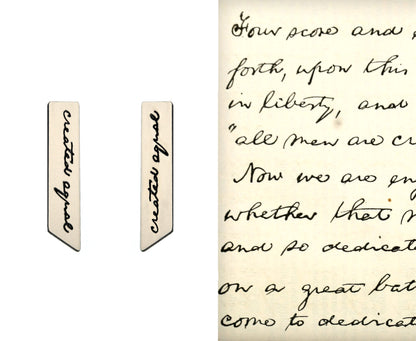 created aqual
created aqual
Four score and
forth, upon this
in liberty, and
"all men are cr
Now we are en
whether that n
and so dedicate
on a great bat
come to dedicat